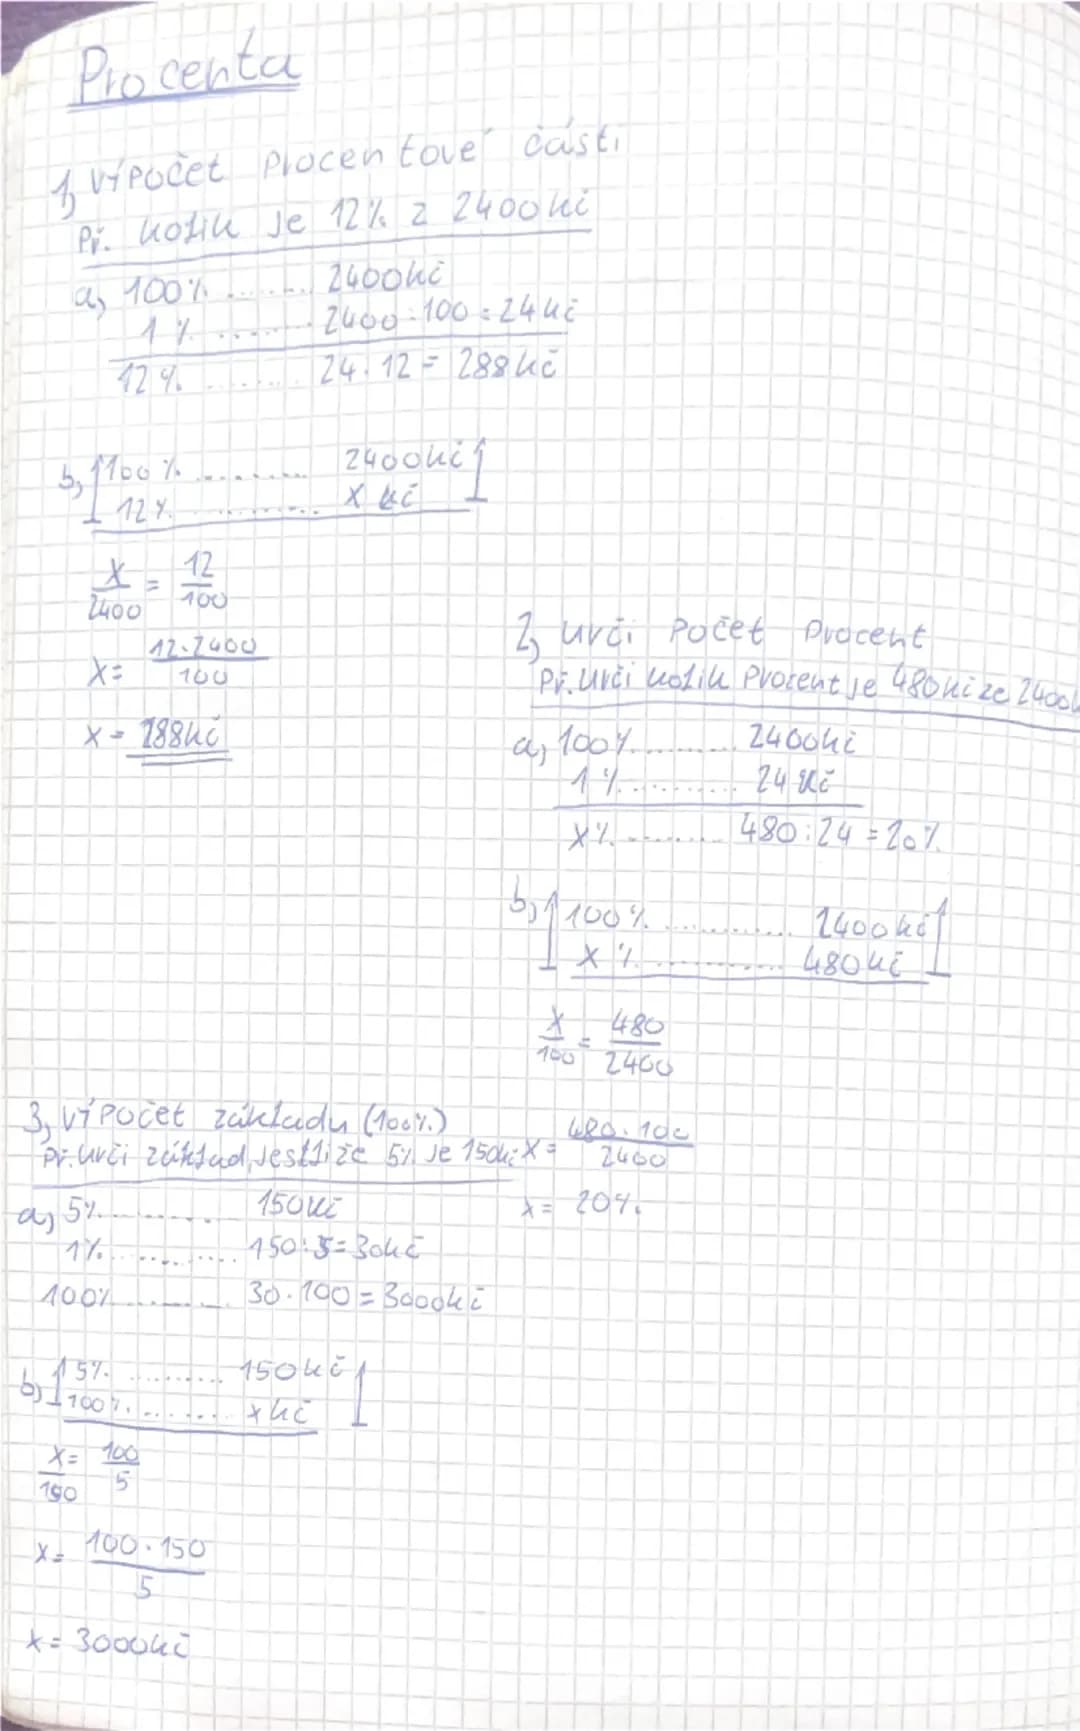 Procenta
1, výpočet procentové části
Př. kolik je 12% z 2400kč
a, 100% ........ 2400kč
1 % ........ 2400:100 = 24kč
12% ........ 24.12 = 288kč
b, 100% ........ 2400kč
12% ........ x kč
x/2400 = 12/100
x = 12.2400/100
x = 288kč
2, urči počet procent
Př. urči kolik procent je 480kč ze 2400k
a, 100% ........ 2400kč
1% ........ 24kč
x% ........ 480:24 = 20%
b, 100% ........ 2400kč
x % ........ 480kč
x/100 = 480/2400
x = 480.100/2400
x = 20%
3, výpočet základu (100%)
př. urči základ, jestliže 5% je 150kč
a, 5% ........ 150kč
1% ........ 150:5=30kč
100% ........ 30.100 = 3000kč
b, 5% ........ 150kč
100% ........ x kč
x/150 = 100/5
x = 100.150/5
x = 3000kč